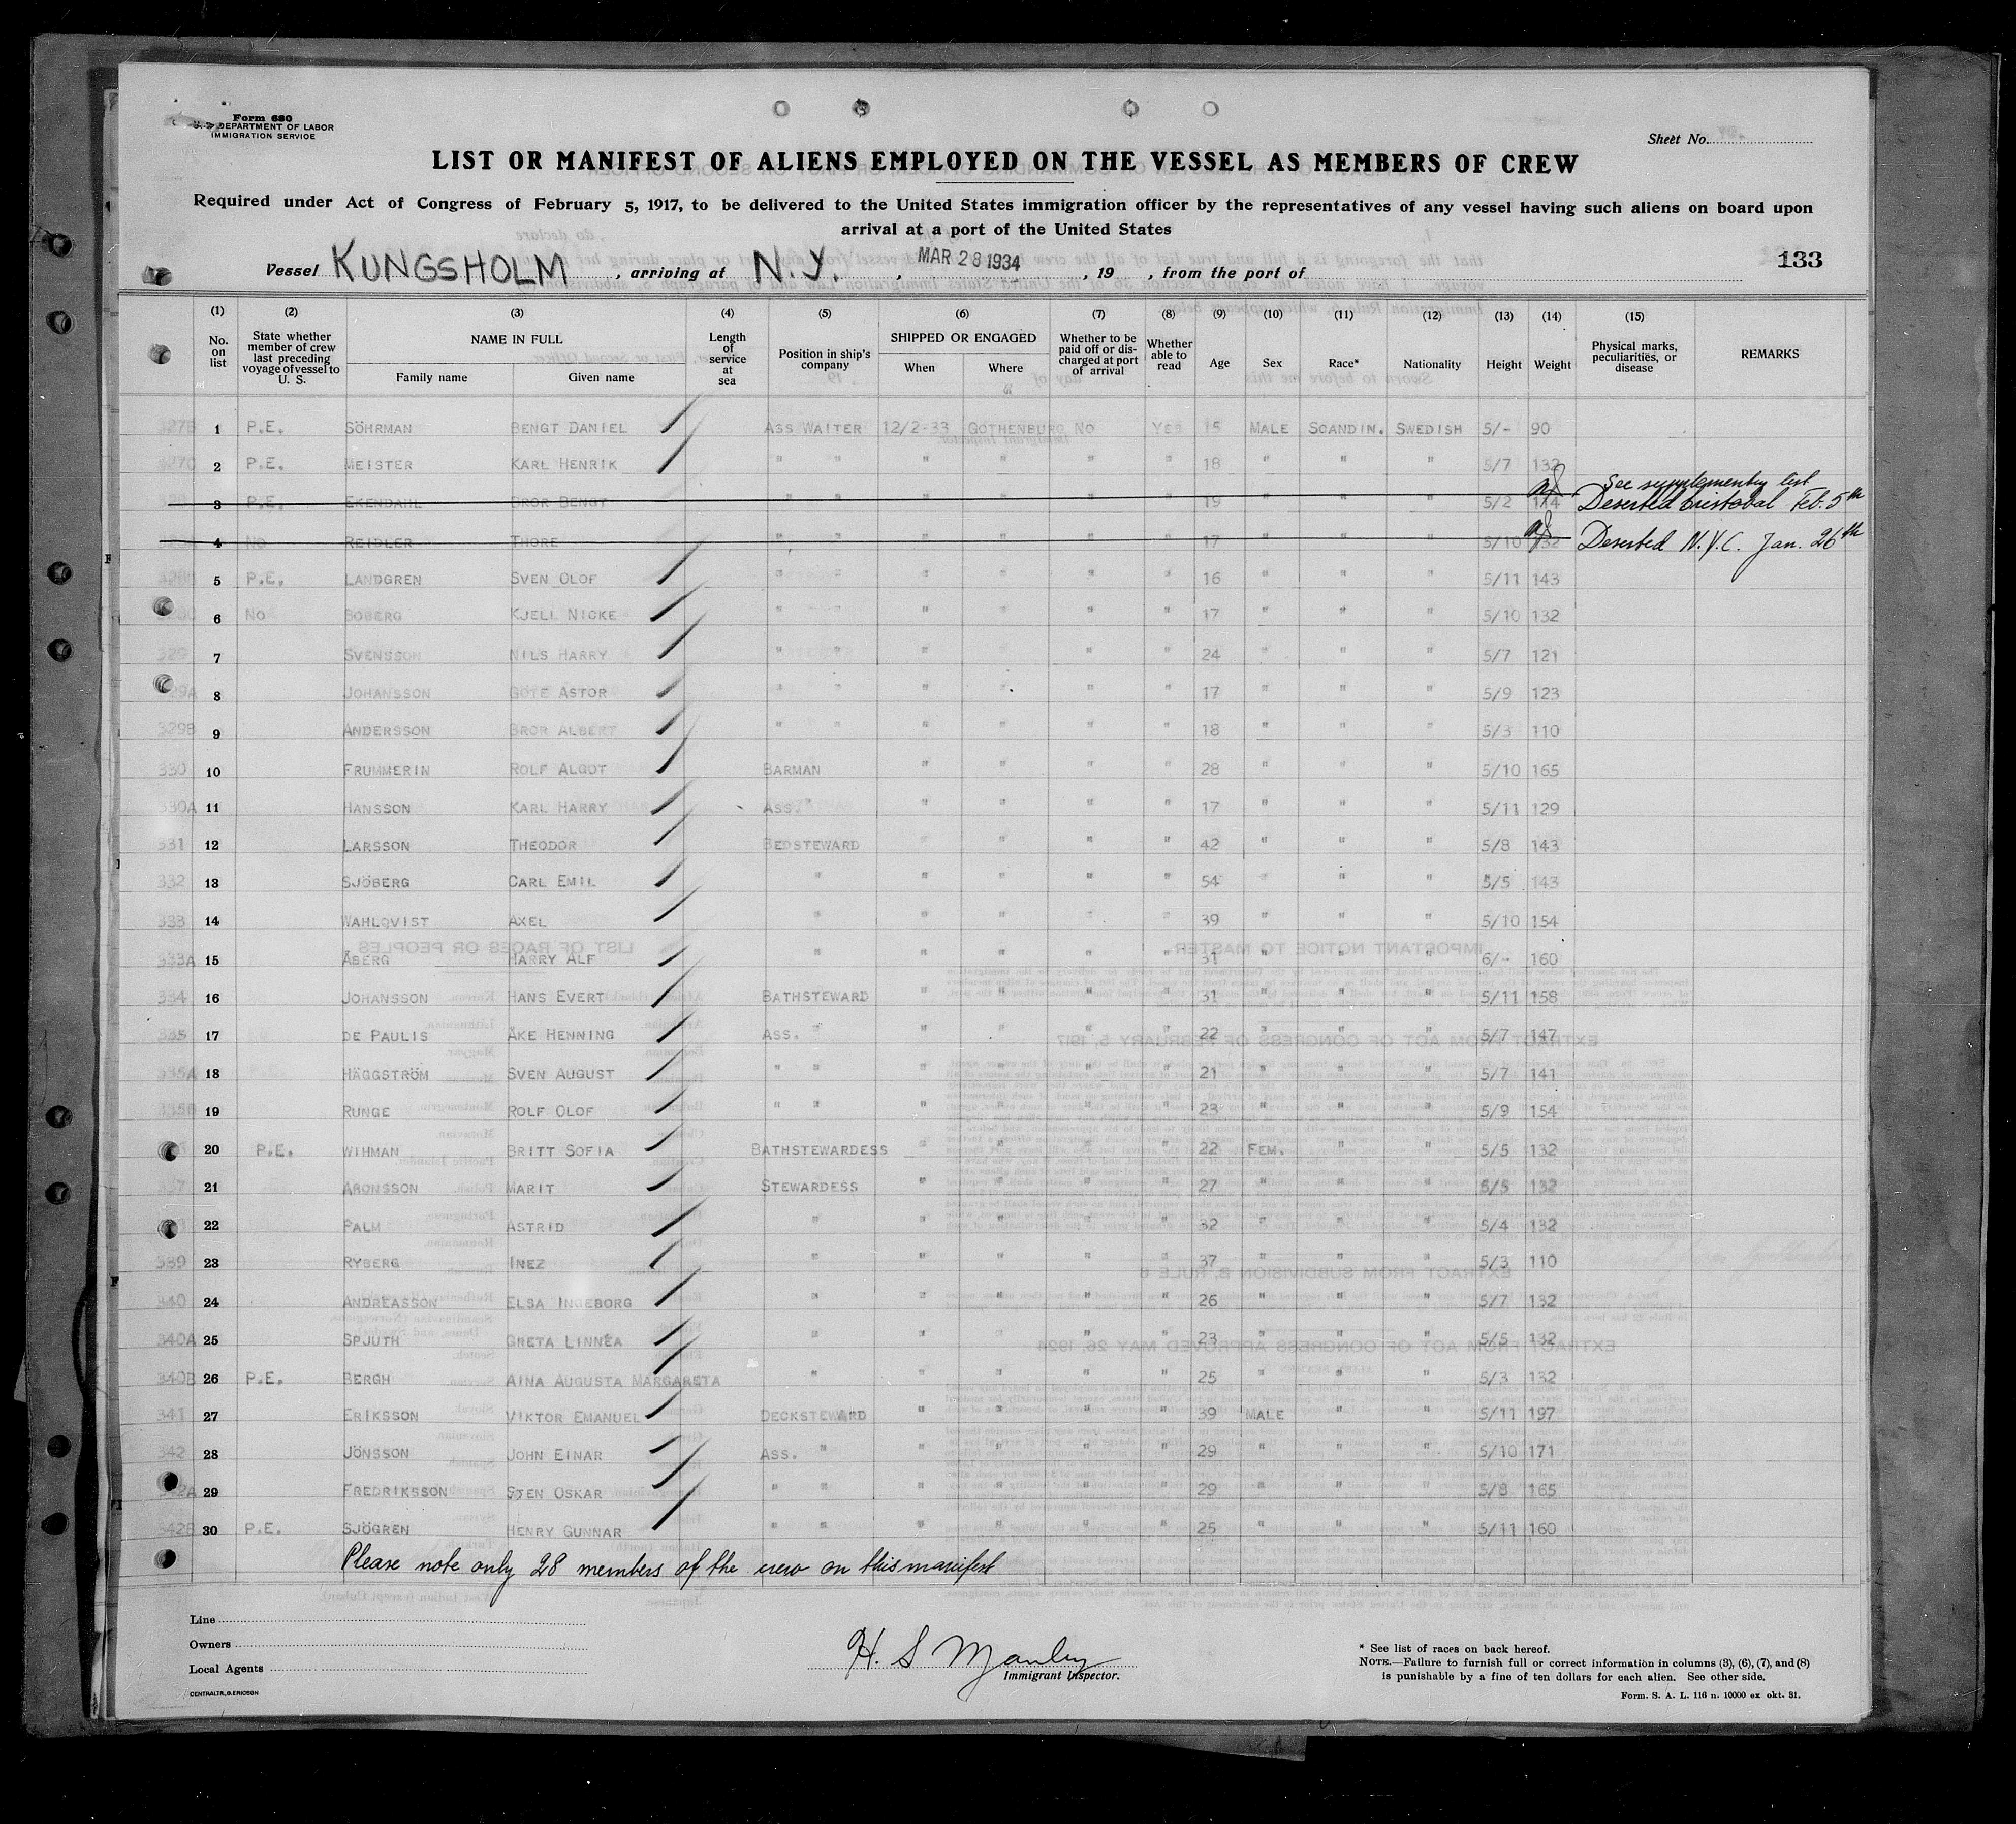 Form 680
U. S. DEPARTMENT OF LABOR
IMMIGRATION SERVICE
Sheet No.
LIST OR MANIFEST OF ALIENS EMPLOYED ON THE VESSEL AS MEMBERS OF CREW
Required under Act of Congress of February 5, 1917, to be delivered to the United States immigration officer by the representatives of any vessel having such aliens on board upon
arrival at a port of the United States
Vessel KUNGSHOLM, arriving at N.Y., MAR 28 1934, 19 , from the port of
133
(1) (2) (3) (4) (5) (6) (7) (8) (9) (10) (11) (12) (13) (14) (15)
No. on list
State whether member of crew last preceding voyage of vessel to U. S.
NAME IN FULL
Family name Given name
Length of service at sea
Position in ship's company
SHIPPED OR ENGAGED
When Where
Whether to be paid off or discharged at port of arrival
Whether able to read
Age Sex Race* Nationality Height Weight
Physical marks, peculiarities, or disease
REMARKS
327B 1 P.E. SÖHRMAN BENGT DANIEL ASS WAITER 12/2-33 GOTHENBURG NO YES 15 MALE SCANDIN. SWEDISH 5/- 90
327C 2 P.E. MEISTER KARL HENRIK " " " " " " 18 " " " 5/7 132
See supplementry list
3 P.E. EKENDAHL BROR BENGT " " " " " " 19 " " " 5/2 114 Deserted Cristobal Feb. 5th
4 NO REIDLER THORE " " " " " " 17 " " " 5/10 132 Deserted N.Y.C. Jan. 26th
5 P.E. LANDGREN SVEN OLOF " " " " " " 16 " " " 5/11 143
6 NO BOBERG KJELL NICKE " " " " " " 17 " " " 5/10 132
329 7 SVENSSON NILS HARRY " " " " " " 24 " " " 5/7 121
329A 8 JOHANSSON GÖTE ASTOR " " " " " " 17 " " " 5/9 123
329B 9 ANDERSSON BROR ALBERT " " " " " " 18 " " " 5/3 110
330 10 FRUMMERIN ROLF ALGOT BARMAN " " " " 28 " " " 5/10 165
330A 11 HANSSON KARL HARRY ASS. " " " " " 17 " " " 5/11 129
331 12 LARSSON THEODOR BEDSTEWARD " " " " 42 " " " 5/8 143
332 13 SJÖBERG CARL EMIL " " " " " 54 " " " 5/5 143
333 14 WAHLQVIST AXEL " " " " " 39 " " " 5/10 154
333A 15 ÅBERG HARRY ALF " " " " " 31 " " " 6/- 160
334 16 JOHANSSON HANS EVERT BATHSTEWARD " " " " 31 " " " 5/11 158
335 17 DE PAULIS ÅKE HENNING ASS. " " " " " 22 " " " 5/7 147
335A 18 HÄGGSTRÖM SVEN AUGUST " " " " " " 21 " " " 5/7 141
335B 19 RUNGE ROLF OLOF " " " " " " 23 " " " 5/9 154
20 P.E. WIHMAN BRITT SOFIA BATHSTEWARDESS " " " " 22 FEM. " " 5/5 132
337 21 ARONSSON MARIT STEWARDESS " " " " 27 " " " 5/5 132
22 PALM ASTRID " " " " " 32 " " " 5/4 132
339 23 RYBERG INEZ " " " " " 37 " " " 5/3 110
340 24 ANDREASSON ELSA INGEBORG " " " " " 26 " " " 5/7 132
340A 25 SPJUTH GRETA LINNÉA " " " " " 23 " " " 5/5 132
340B 26 P.E. BERGH AINA AUGUSTA MARGARETA " " " " " 25 " " " 5/3 132
341 27 ERIKSSON VIKTOR EMANUEL DECKSTEWARD " " " " 39 MALE " " 5/11 197
342 28 JÖNSSON JOHN EINAR ASS. " " " " " 29 " " " 5/10 171
342A 29 FREDRIKSSON STEN OSKAR " " " " " " 29 " " " 5/8 165
342B 30 P.E. SJÖGREN HENRY GUNNAR " " " " " " 25 " " " 5/11 160
Please note only 28 members of the crew on this manifest
Line
Owners
Local Agents
CENTRALTR., G. ERICSON
H. S Manley
Immigrant Inspector.
* See list of races on back hereof.
NOTE.—Failure to furnish full or correct information in columns (3), (6), (7), and (8)
is punishable by a fine of ten dollars for each alien. See other side.
Form. S. A. L. 116 n. 10000 ex okt. 31.